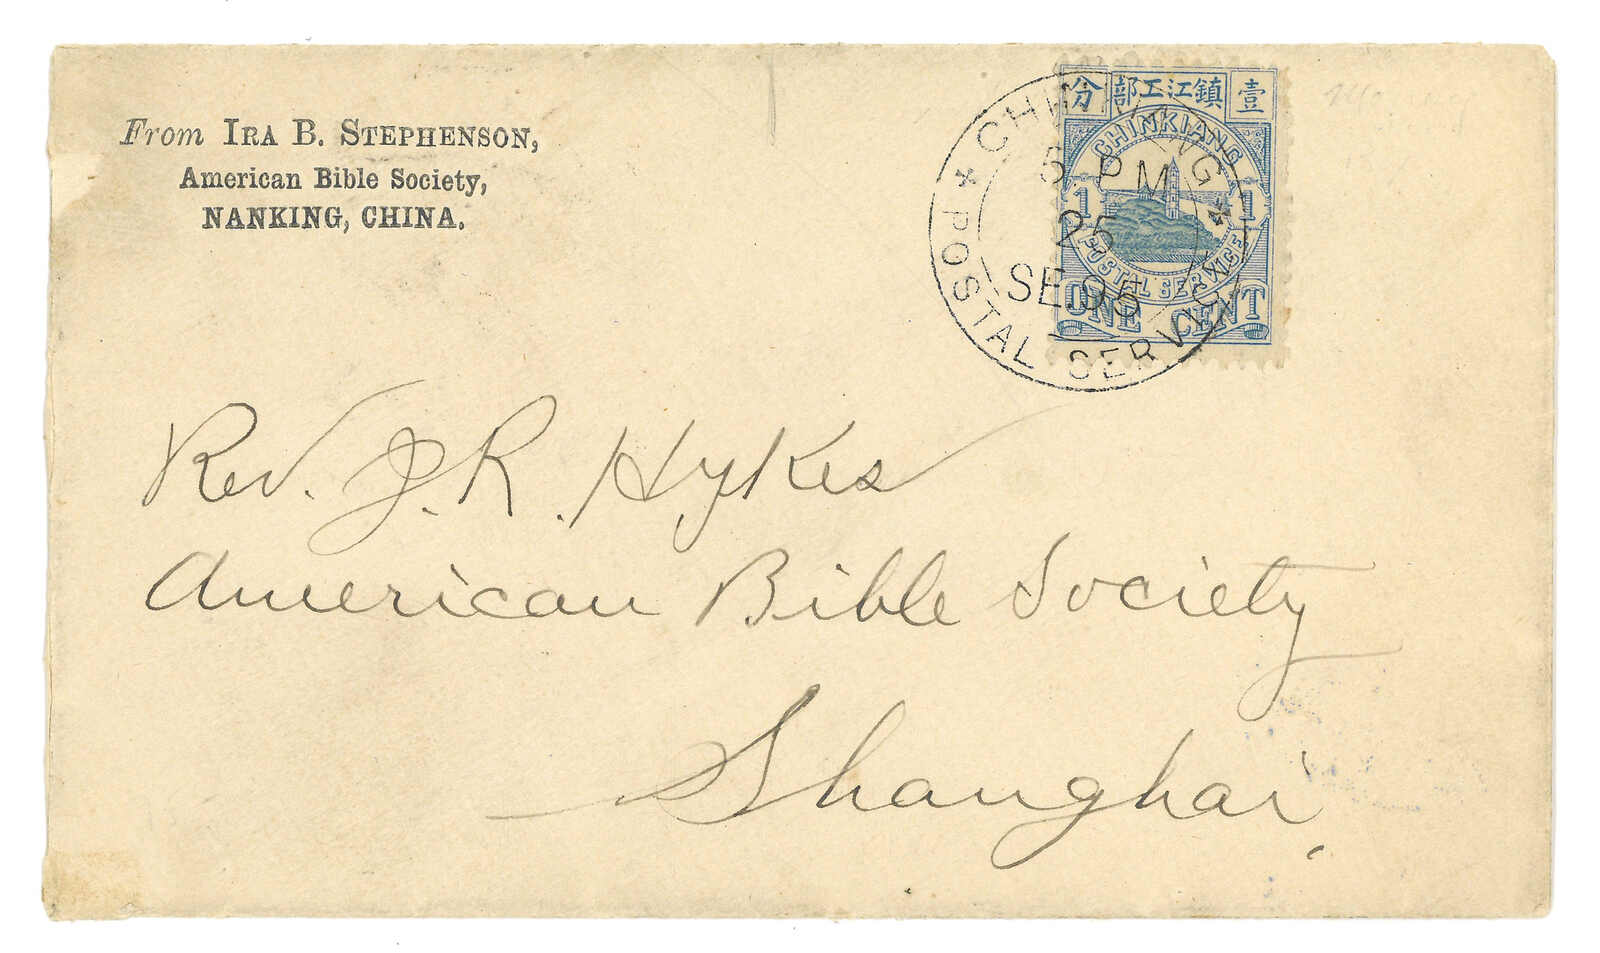 From IRA B. STEPHENSON,
American Bible Society,
NANKING, CHINA.
分 部工江鎮 壹
CHINKIANG
1 1
POSTAL SERVICE
ONE CENT
CHINKIANG
5 PM
25
SE.95
POSTAL SERVICE
Rev. J. R. Hykes
American Bible Society
Shanghai,